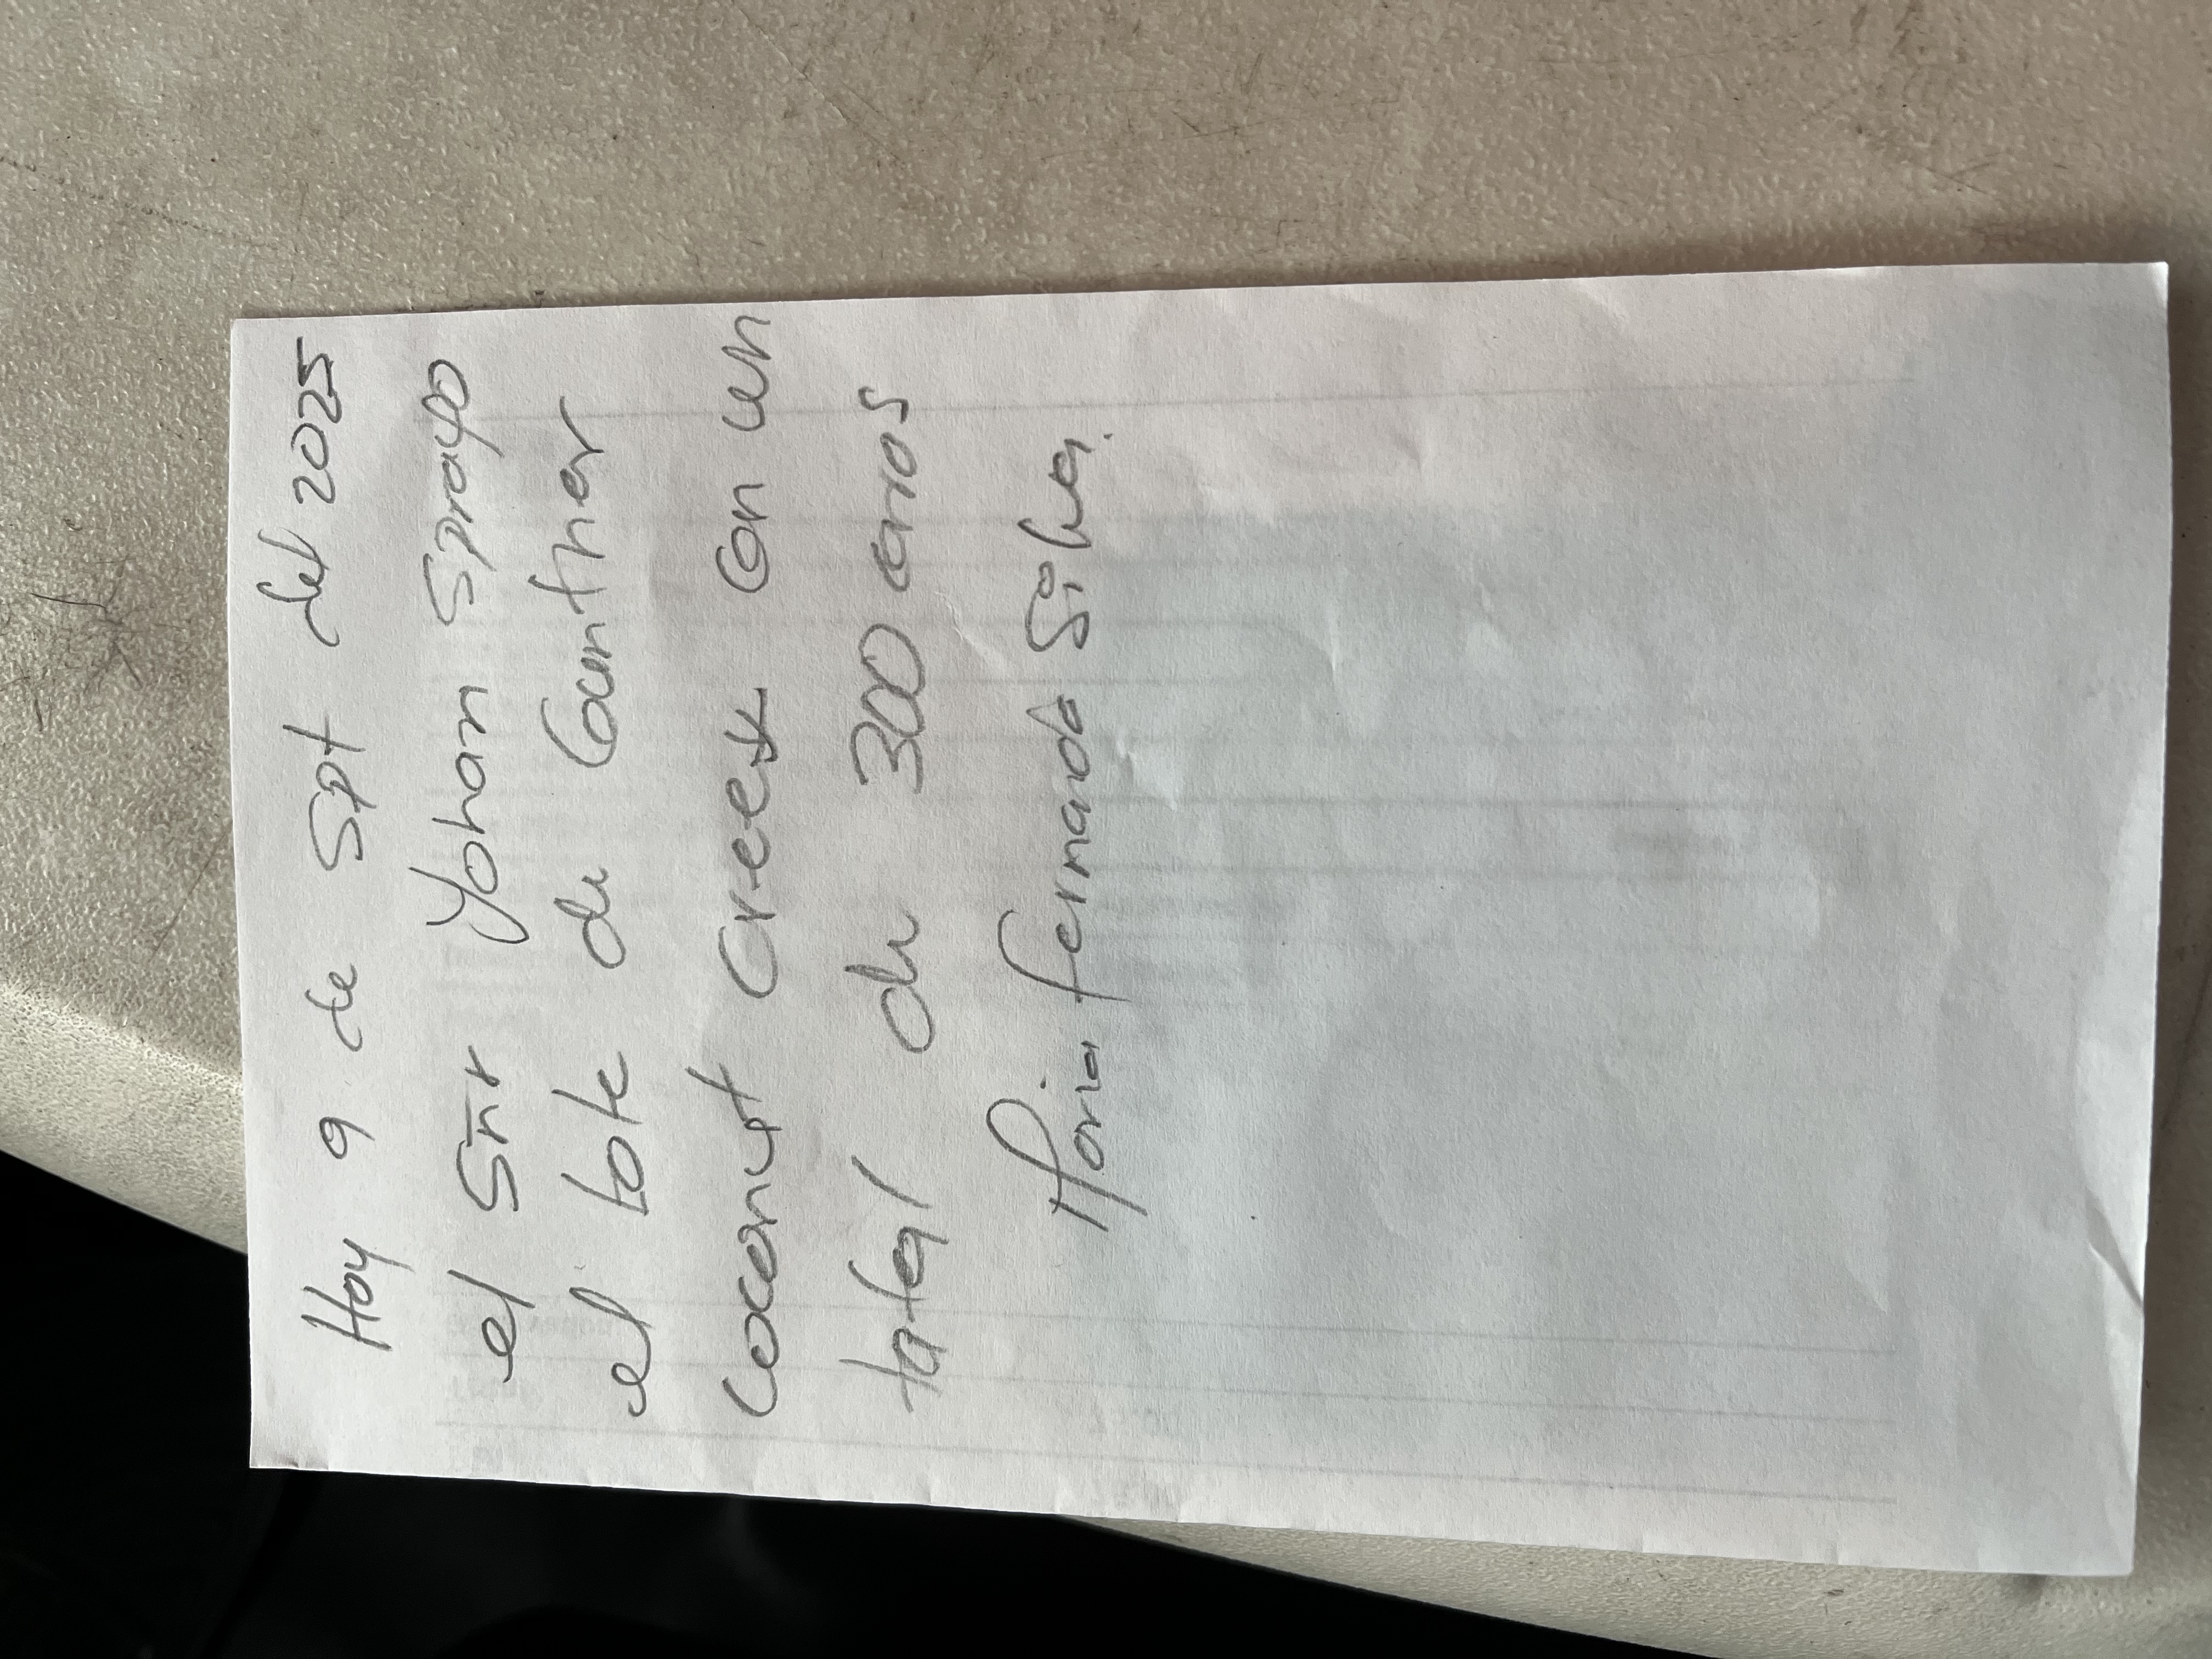 Hoy 9 de Spt del 2025
el Snr Yohan Sprayo
el lote de Counthar
Coconut Creek Con un
total de 300 arios
Maria fernanda Silva.